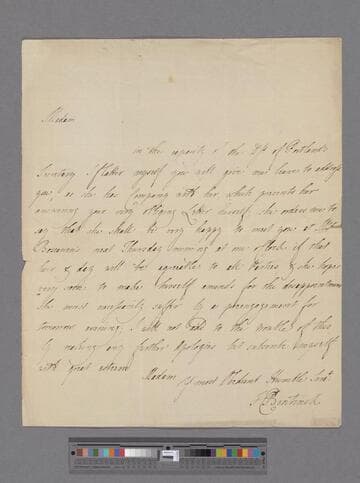 Madam
in the capacity of the Ds of Portland's
Secretary I flatter myself you will give me leave to address
you, as she has Company with her which prevents her
answering your very obliging Letter herself. She orders me to
say that she shall be very happy to meet you at Mrs
next Thursday Evening at six o'clock if that
hour & day will be agreeable to all Parties & she hopes
very soon to make herself amends for the disappointment
She must necessarily suffer by a preengagement for
tomorrow evening. I will not add to the trouble of this
by making any further Apologies but subscribe myself
with great esteem
Madam
Yr most Obedient Humble Servt
Bentinck